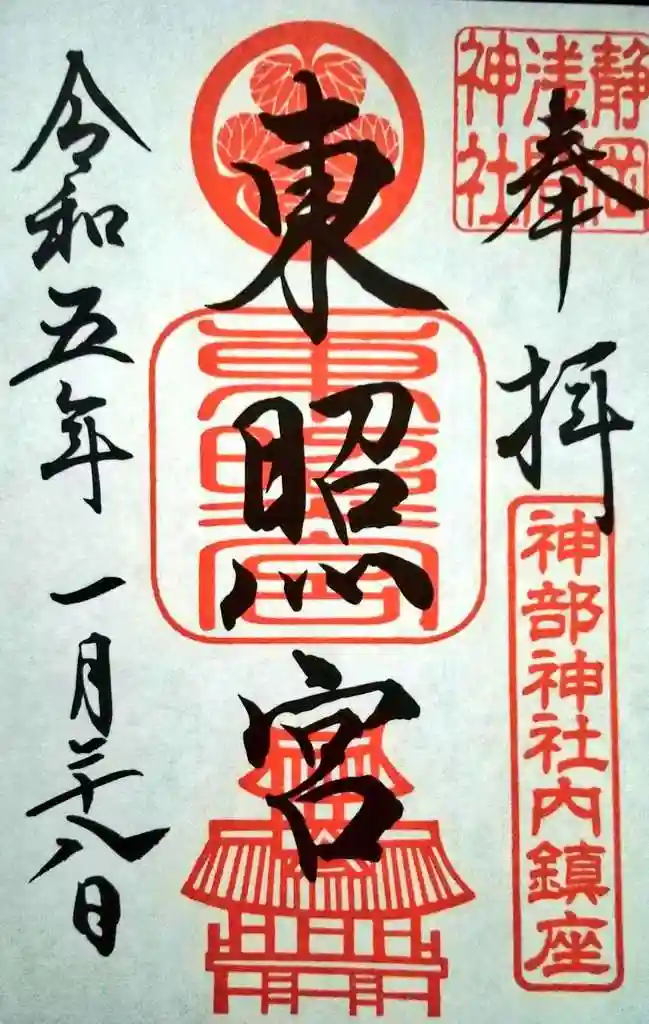 静岡
浅間
神社
奉拝
神部神社内鎮座
東照宮
東照宮
令和五年 一月二十八日